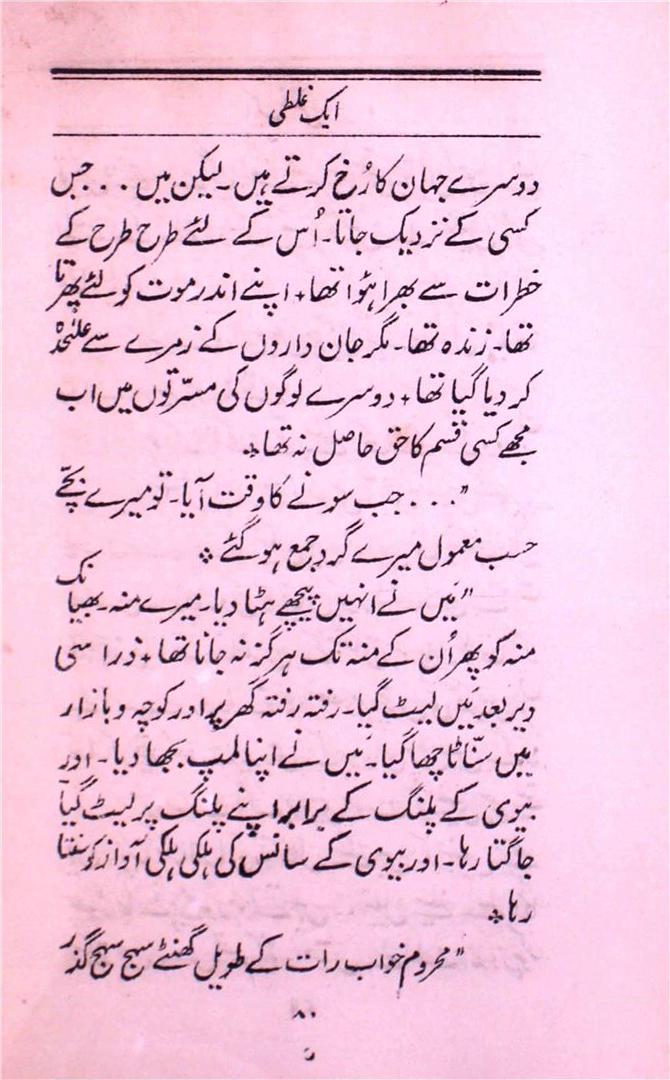 ایک غلطی
دوسرے جہان کا رُخ کرتے ہیں۔ لیکن میں ... جس
کسی کے نزدیک جاتا۔ اُس کے لئے طرح طرح کے
خطرات سے بھرا ہؤا تھا٭ اپنے اندر موت کو لئے پھرتا
تھا۔ زندہ تھا۔ مگر جان داروں کے زمرے سے علیٰحدہ
کر دیا گیا تھا٭ دوسرے لوگوں کی مسرّتوں میں اب
مجھے کسی قسم کا حق حاصل نہ تھا٭
”... جب سونے کا وقت آیا۔ تو میرے بچّے
حسب معمول میرے گرد جمع ہو گئے٭
”مَیں نے انہیں پیچھے ہٹا دیا۔ میرے منہ۔ بھیانک
منہ کو پھر اُن کے منہ تک ہرگز نہ جانا تھا٭ ذرا سی
دیر بعد مَیں لیٹ گیا۔ رفتہ رفتہ گھر پر اور کوچہ و بازار
میں سنّاٹا چھا گیا۔ مَیں نے اپنا لمپ بجھا دیا۔ اور
بیوی کے پلنگ کے برابر اپنے پلنگ پر لیٹ گیا
جاگتا رہا۔ اور بیوی کے سانس کی ہلکی ہلکی آواز کو سنتا
رہا٭
”محروم خواب رات کے طویل گھنٹے سہج سہج گذر
۸۰